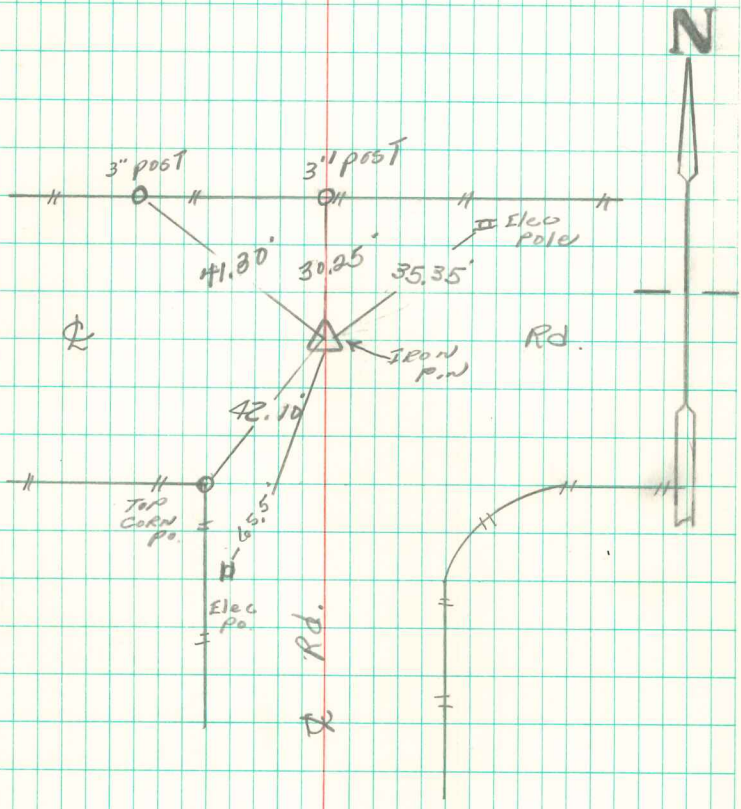 N
3" POST
3" POST
Elec
Pole
41.30'
30.25'
35.35'
℄
Rd.
IRON
PIN
42.10'
TOP
CORN
PO.
65.5'
Elec
Po.
℄ Rd.